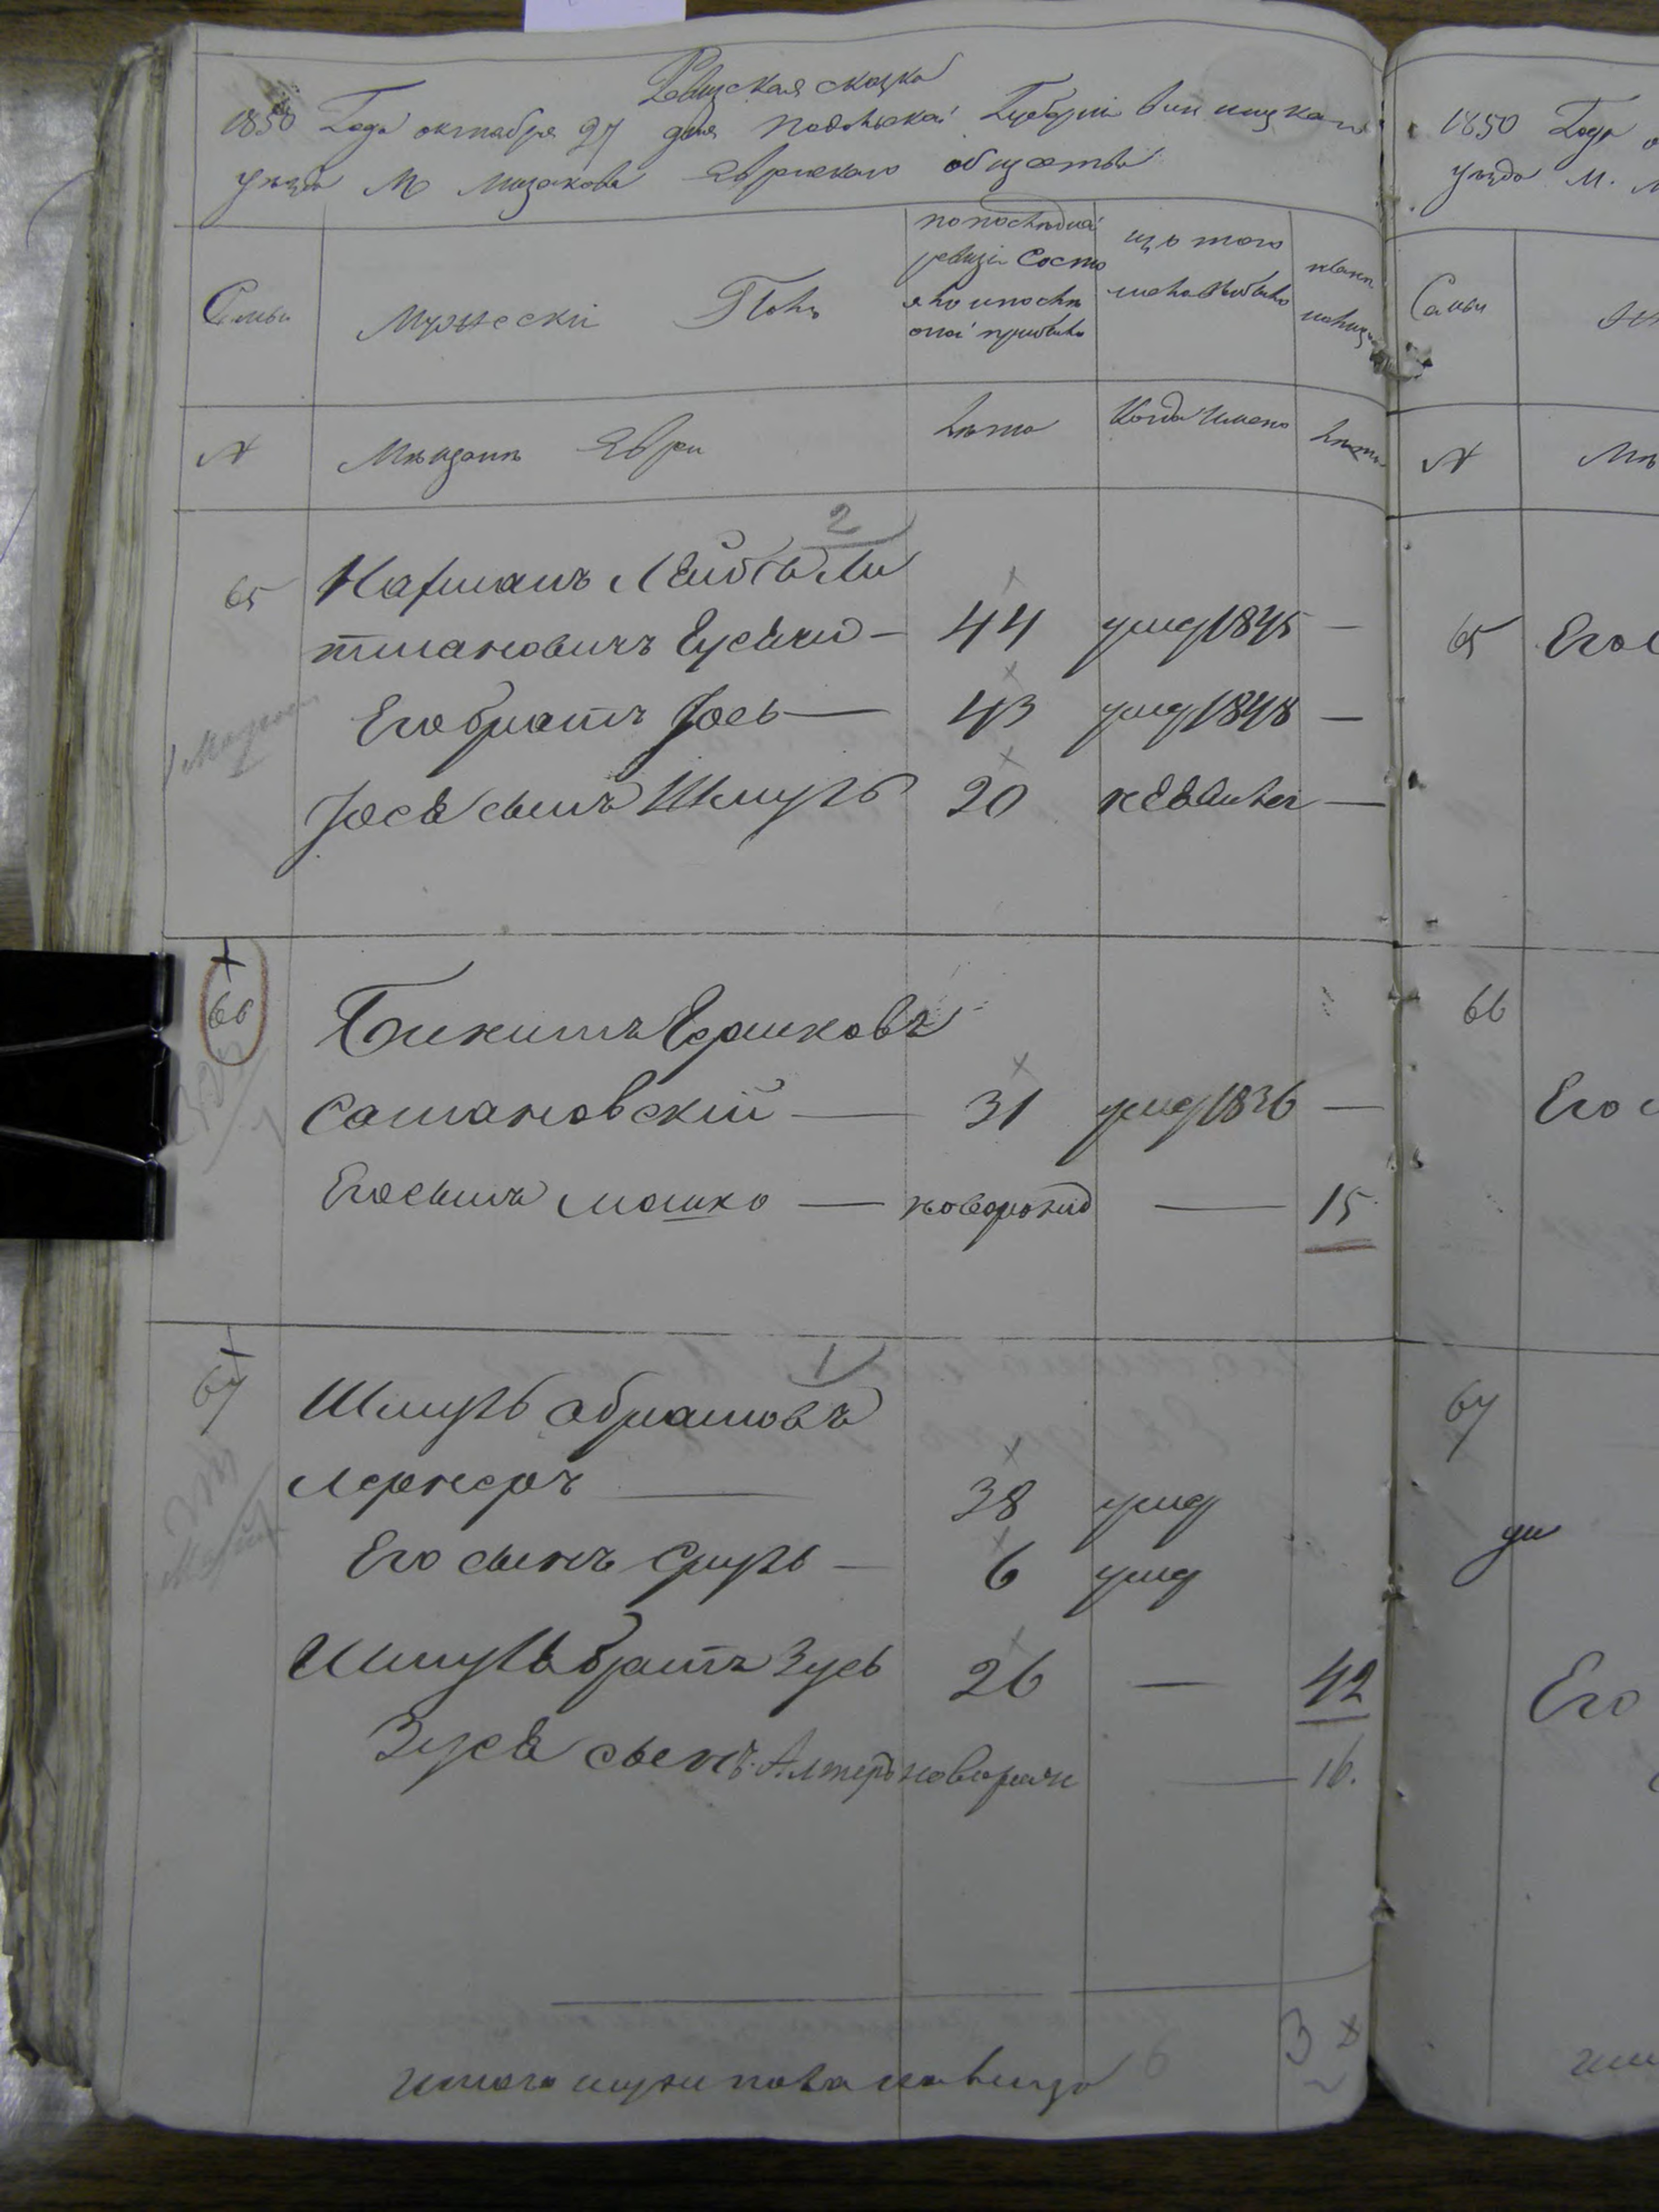 Ревизская сказка
1850 Года октября 27 дня Подольской Губернии Винницкаго
уезда М Мизякова Еврейскаго общества
Семьи
Мужески Полъ
по последней
ревизи Состо
яло и после
оной прибыло
изъ того
числа выбыло
ныне
налицо
№
Мещане Евреи
лета
Когда именно
лета
2
65
Нахманъ Лейбъ Ли
тмановичъ Гусеки — 44 умер 1845 —
Его братъ Йось — 43 умер 1848 —
Йося сынъ Шмуль 20 неявился —
66
Бикитъ Ершковъ
Сотановский — 31 умер 1836 —
Его сынъ Мошко — новорожд — 15
67
1
Шмуль Абрамовъ
Лернеръ — 38 умер
Его сынъ Сруль — 6 умер
Шмуля братъ Зусь 26 — 42
Зуся сынъ Алтеръ новорож — 16.
итого мужс пола налицо 3
1850 Года
уезда М.
Семьи
№
65
Его
66
Его
67
Его